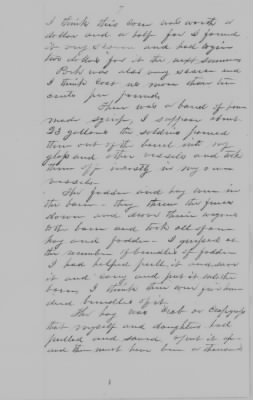 I think this corn was worth a
dollar and a half for I found
it very scarce and had to give
two dollars for it the next summer
Pork was also very scarce and
I think cost us more than ten
cents per pound.
There was a barrel of home
made syrup, I suppose about
25 gallons the soldiers poured
them out of the barrel into my
and other vessels and took
them off mostly in my own
vessels.
The fodder and hay were in
the barn – they threw the fence
down and drove their wagons
to the barn and took all of our
hay and fodder. I guessed at
the number of bundles of fodder
I had helped pull it and save
it and carry and put it into the
barn, I think there were five hun
dred bundles of it.
The hay was Crab or Crop grass
that myself and daughters had
pulled and saved, put it up
and there must have been a thousand